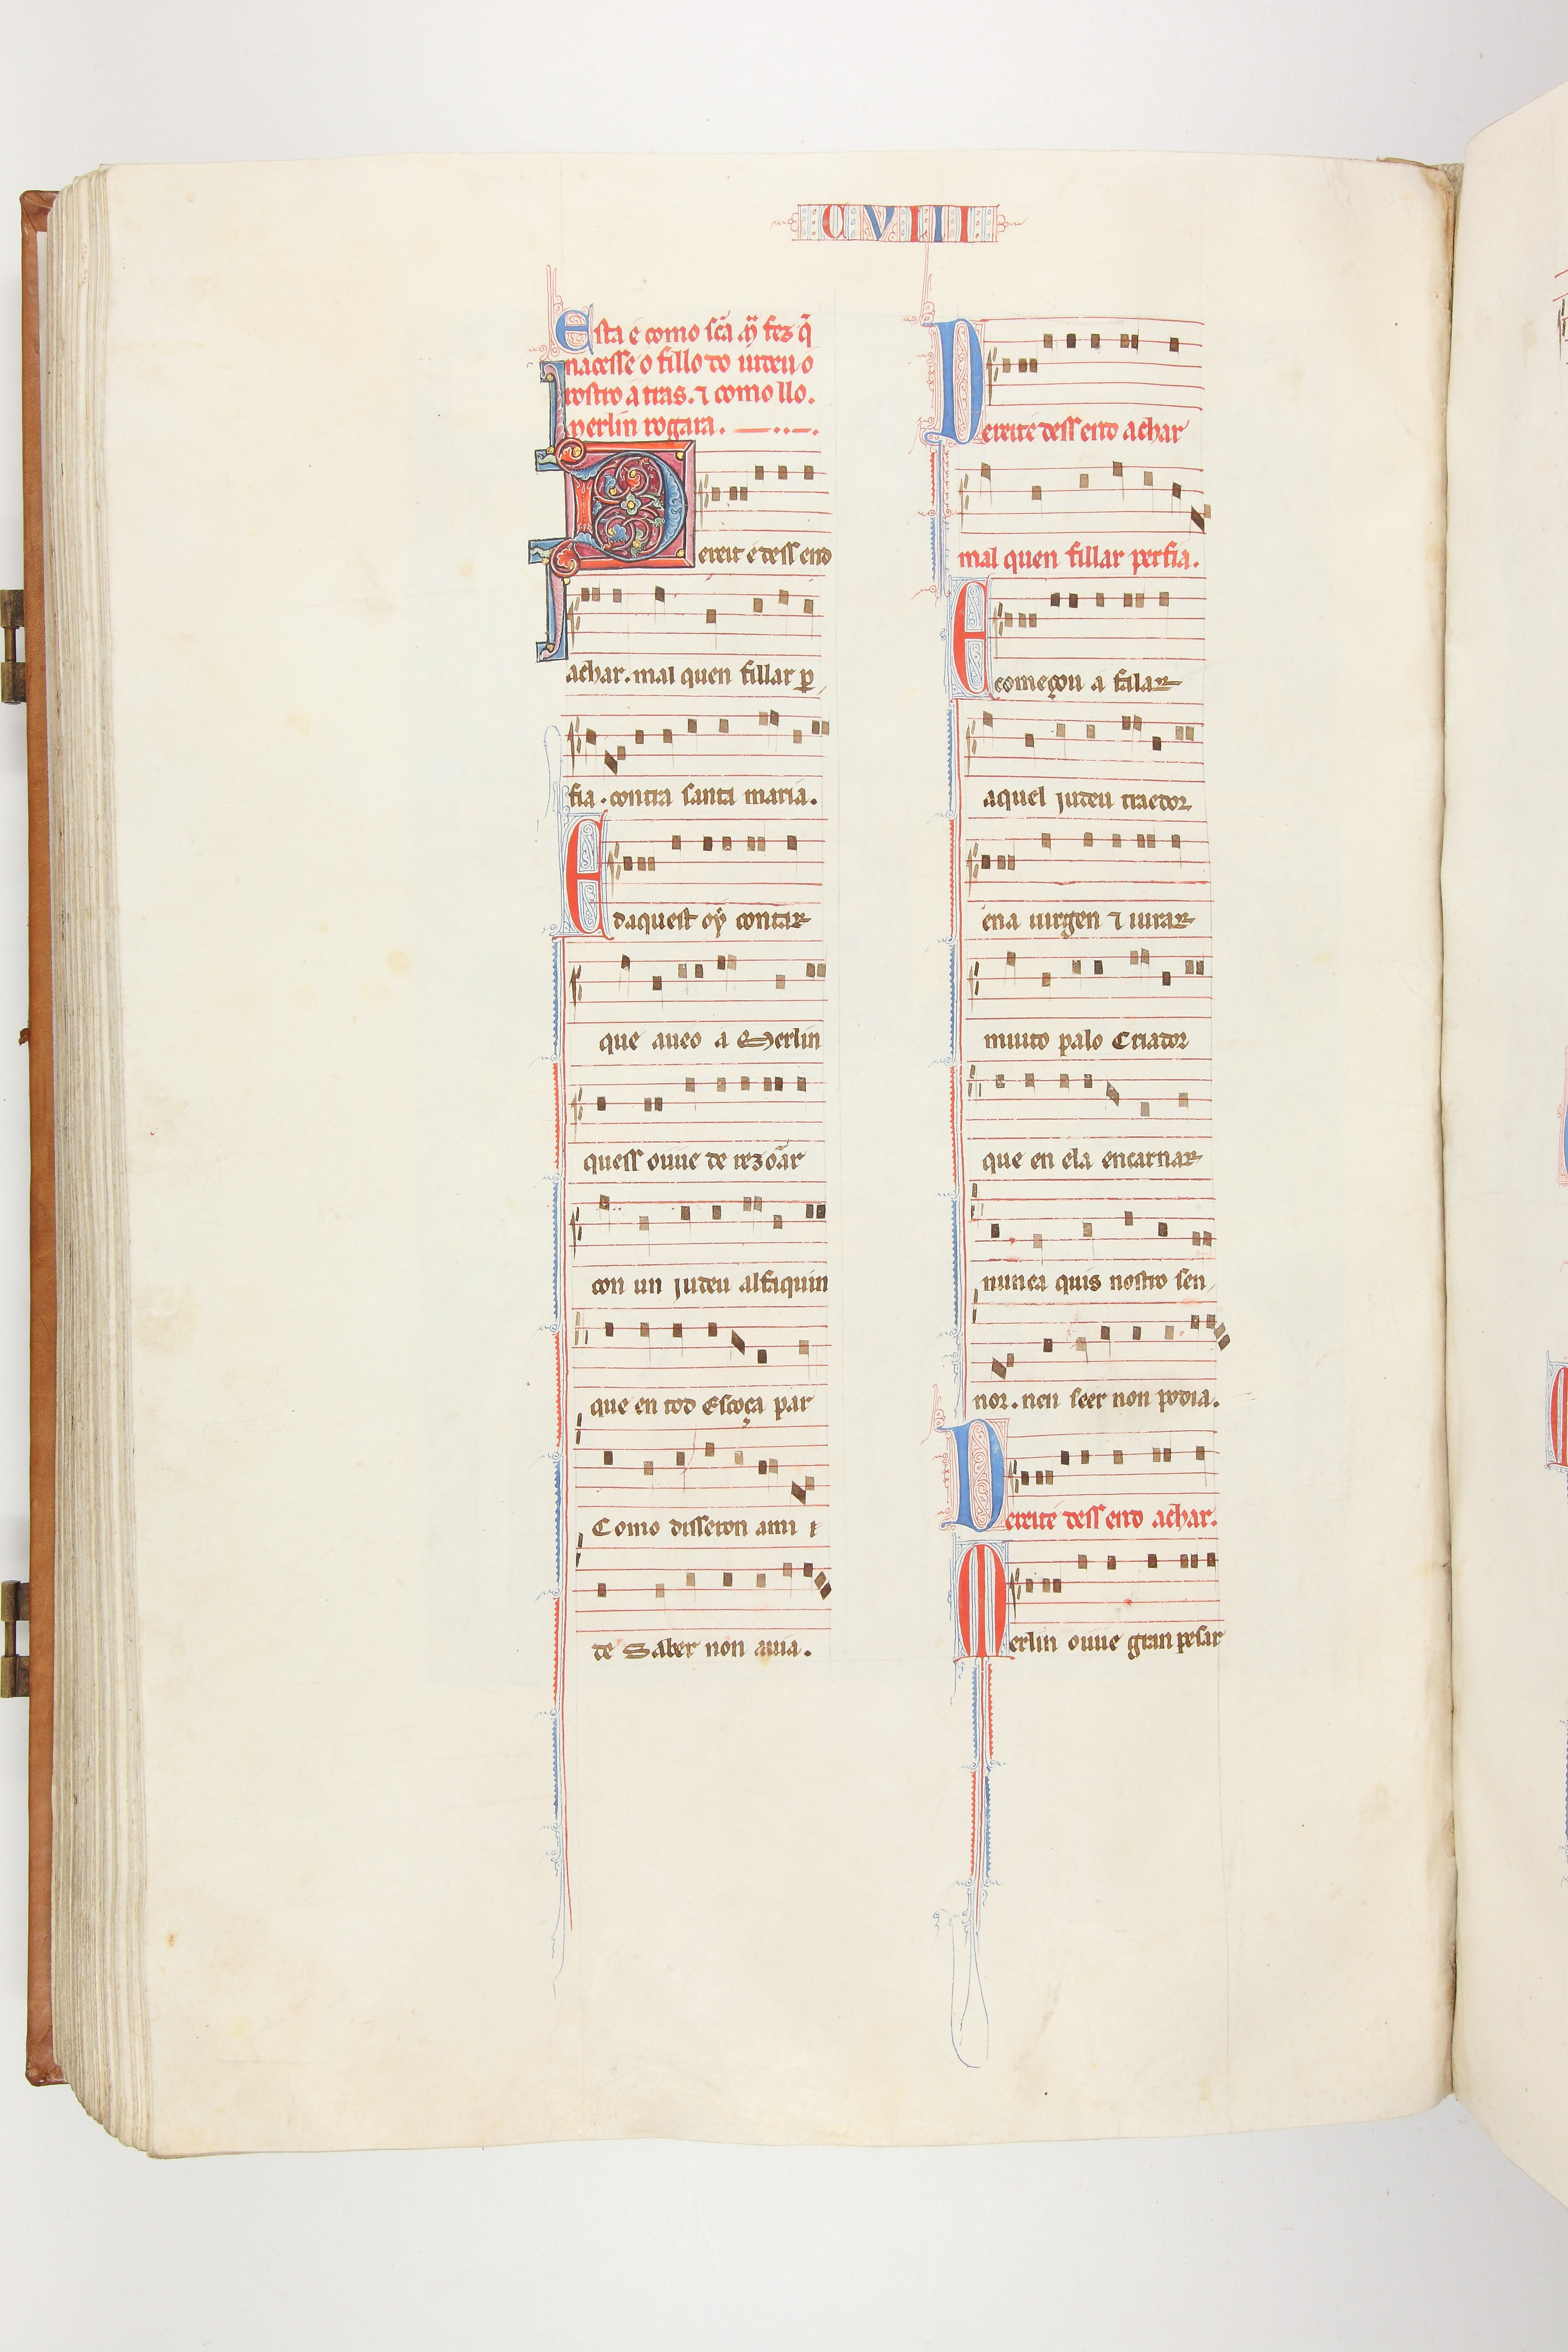 CVIII
Esta é como sc̃a mͣ fez q̃
nacesse o fillo do iudeu o
rostro a tras. ⁊ como llo.
merlin rogara.
Dereit é dess end
achar. mal quen fillar ꝑ
fia. contra santa maria.
E daquest oý contar
que aueo a Merlin
quess ouue de rezõar
con un judeu alfaquin
que en tod Escoça par
Como disseron ami
de Saber non auia.
Dereité dess end achar
mal quen fillar perfia.
E começou a falar
aquel judeu traedor
ena uirgen ⁊ iurar
muito palo Criador
que en ela encarnar
nunca quis nostro sen
nor. nen seer non podia.
Dereité dess end achar.
Merlin ouue gran pesar